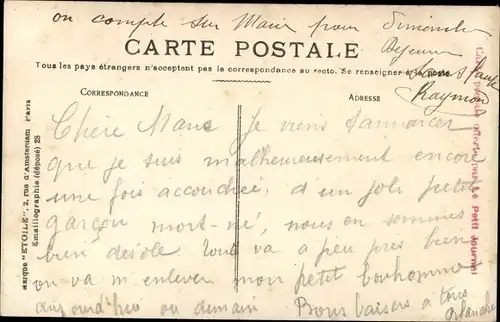 on compte sur Marie pour Dimanche
Dejeuner
CARTE POSTALE
Tous les pays étrangers n'acceptent pas la correspondance au recto. Se renseigner à la Poste
Raymond
CORRESPONDANCE
ADRESSE
Chère Marie Je viens t'annoncer
que je suis malheureusement encore
une fois accouchée, d'un joli petit
garçon mort-né, nous en sommes
bien désolé. Tout va a peu près bien
on va m'enlever mon petit bonhomme
aujourd'hui ou demain Bons baisers a tous
Blanche
Marque "ETOILE", 2, rue d'Amsterdam Paris
Emaillographie (déposé) 28
Carte postale offerte par Le Petit Journal